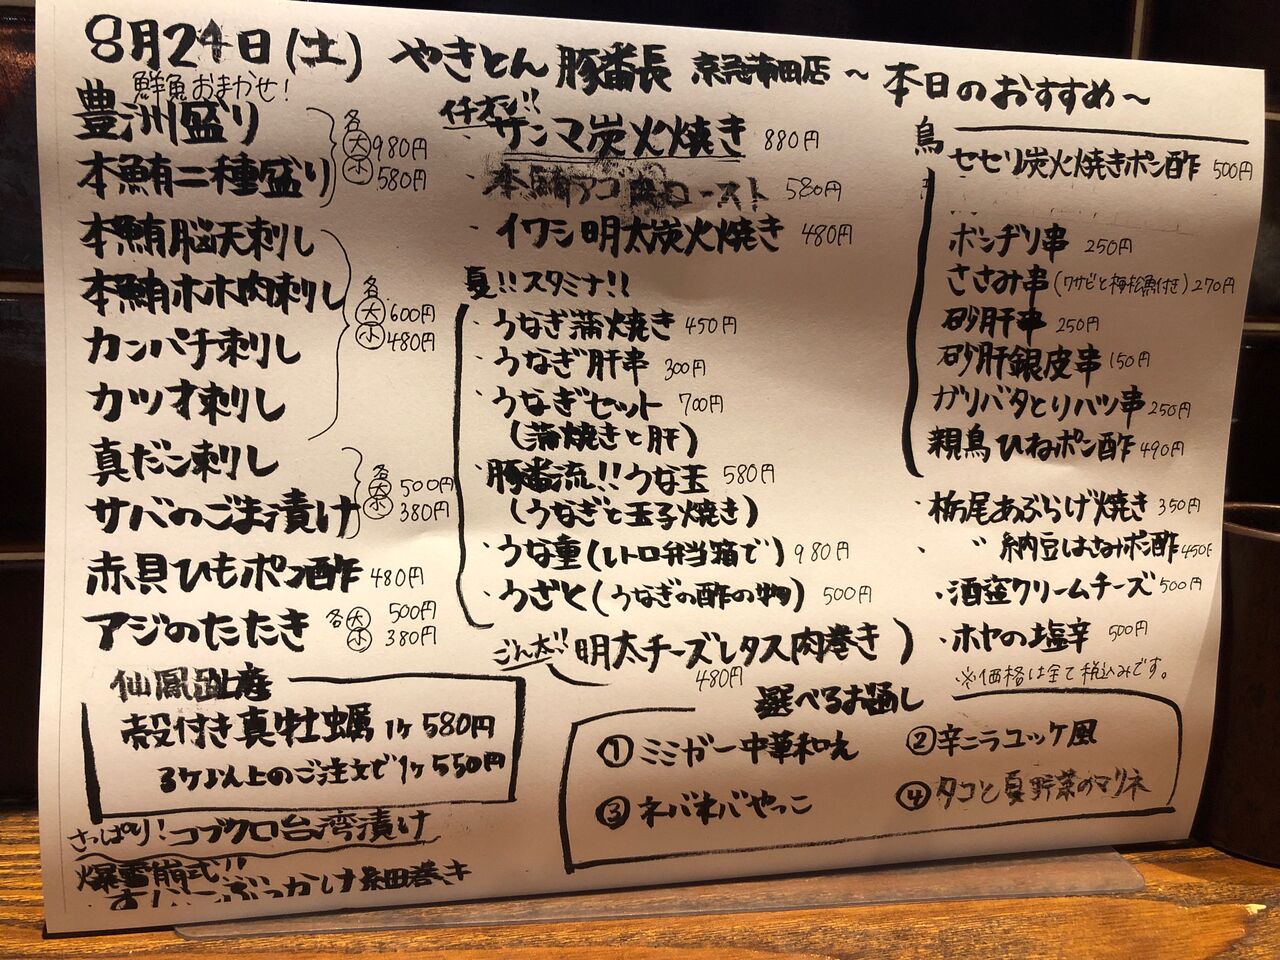 8月24日(土) やきとん 豚番長 京急蒲田店 ～本日のおすすめ～
鮮魚おまかせ!
豊洲盛り
本鮪二種盛り
各 大 980円
小 580円
本鮪脳天刺し
本鮪ホホ肉刺し
カンパチ刺し
カツオ刺し
各 大 600円
小 480円
真だこ刺し
サバのごま漬け
各 大 500円
小 380円
赤貝ひもポン酢 480円
アジのたたき 各 大 500円
小 380円
仙鳳趾産
殻付き真牡蠣 1ケ 580円
3ケ以上のご注文で1ケ550円
さっぱり!コブクロ台湾漬け
爆雪崩式!!
ぶっかけ
イチオシ!!
サンマ炭火焼き 880円
・本鮪アゴ肉ロースト 580円
・イワシ明太炭火焼き 480円
夏!!スタミナ!!
・うなぎ蒲焼き 450円
・うなぎ肝串 300円
・うなぎセット 700円
(蒲焼きと肝)
・豚番流!!うな玉 580円
(うなぎと玉子焼き)
・うな重(レトロ弁当箱で) 980円
・うざく(うなぎの酢の物) 500円
ごん太!!明太チーズレタス肉巻き
480円
鳥
セセリ炭火焼きポン酢 500円
ボンヂリ串 250円
ささみ串(ワサビと梅松魚付き) 270円
砂肝串 250円
砂肝銀皮串 150円
ガリバタとりハツ串 250円
親鳥ひねポン酢 490円
・栃尾あぶらげ焼き 350円
・ 〃 納豆はさみポン酢 450円
・酒盗クリームチーズ 500円
・ホヤの塩辛 500円
※価格は全て税込みです。
選べるお通し
①ミミガー中華和え
②辛ニラユッケ風
③ネバネバやっこ
④タコと夏野菜のマリネ